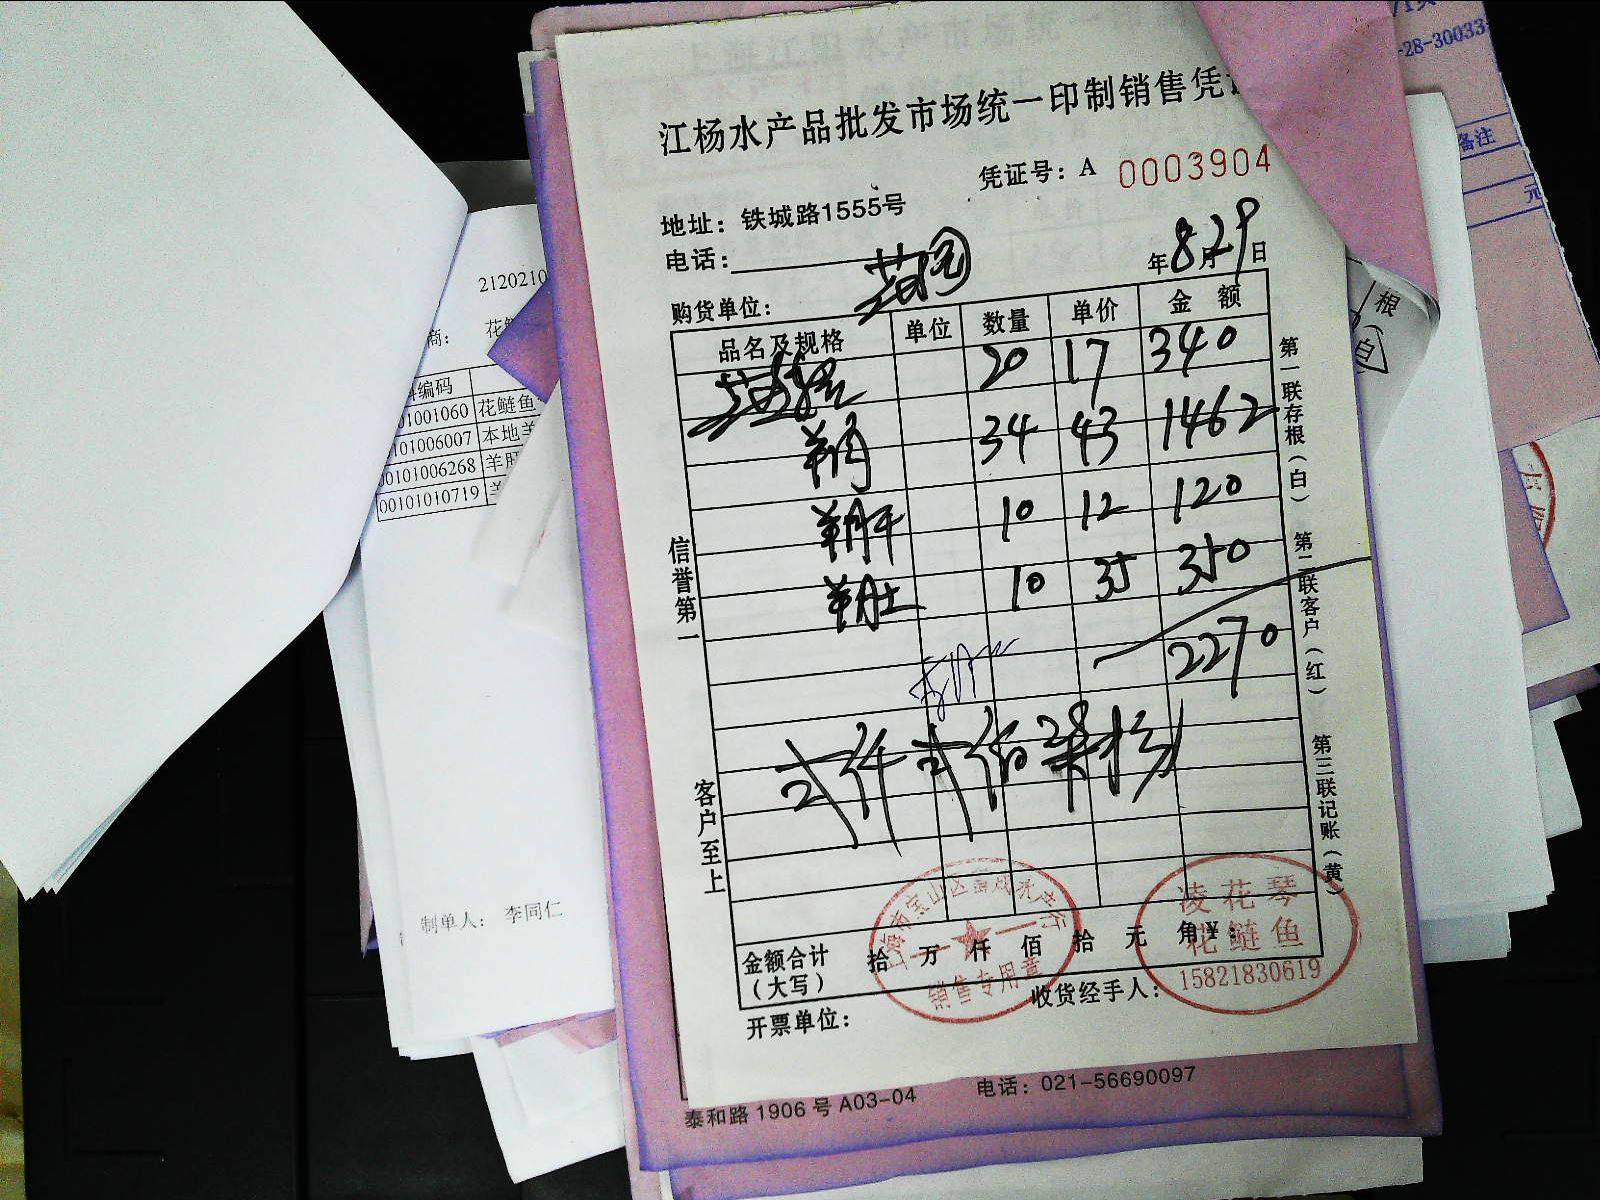 江杨水产品批发市场统一印制销售凭
凭证号：A 0003904
地址：铁城路1555号
电话：
年8月29日
购货单位：
品名及规格 单位 数量 单价 金额
20 17 340
羊肉 34 43 1462
羊肝 10 12 120
羊肚 10 35 350
2270
弍仟弍佰柒拾
金额合计（大写） 拾 万 仟 佰 拾 元 角
开票单位：
收货经手人：
信誉第一
客户至上
第一联存根（白）
第二联客户（红）
第三联记账（黄）
销售专用章
凌花琴
花鲢鱼
15821830619
泰和路1906号A03-04 电话：021-56690097
2120210
商：
编码
01001060 花鲢鱼
0101006007 本地羊
00101006268 羊肝
00101010719
制单人： 李同仁
-28-30033
备注
元
根
（白）